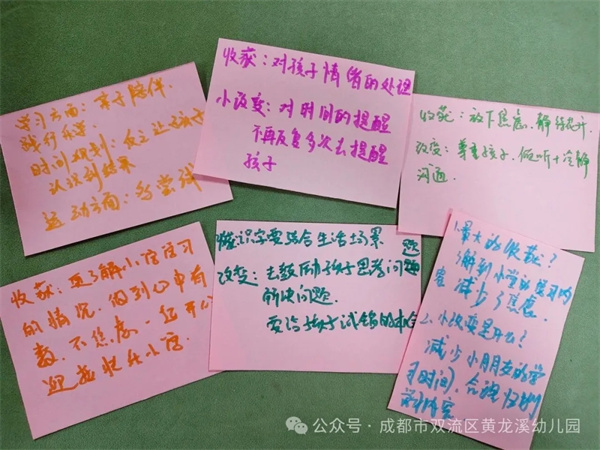 学习方面：亲子陪伴
践行乐学.
时间规划：自主让孩子
认识到结果
运动方面：多尝试
收获：对孩子情绪的处理
小改变：对时间的提醒
不再反复多次去提醒
孩子
收获：放下焦虑.静待花开.
改变：尊重孩子.倾听+冷静
沟通.
收获：更了解小学学习
的情况，做到心中有
数，不焦虑.一起开心
迎接快乐小学.
收获：识字要结合生活场景
改变：去鼓励孩子思考问题
解决问题.
要给孩子试错的机会
1.最大的收获？
了解到小学的复习内
容 减少了焦虑.
2.小改变是什么？
减少小朋友的学
习时间，合理规划
公众号·成都市双流区黄龙溪幼儿园